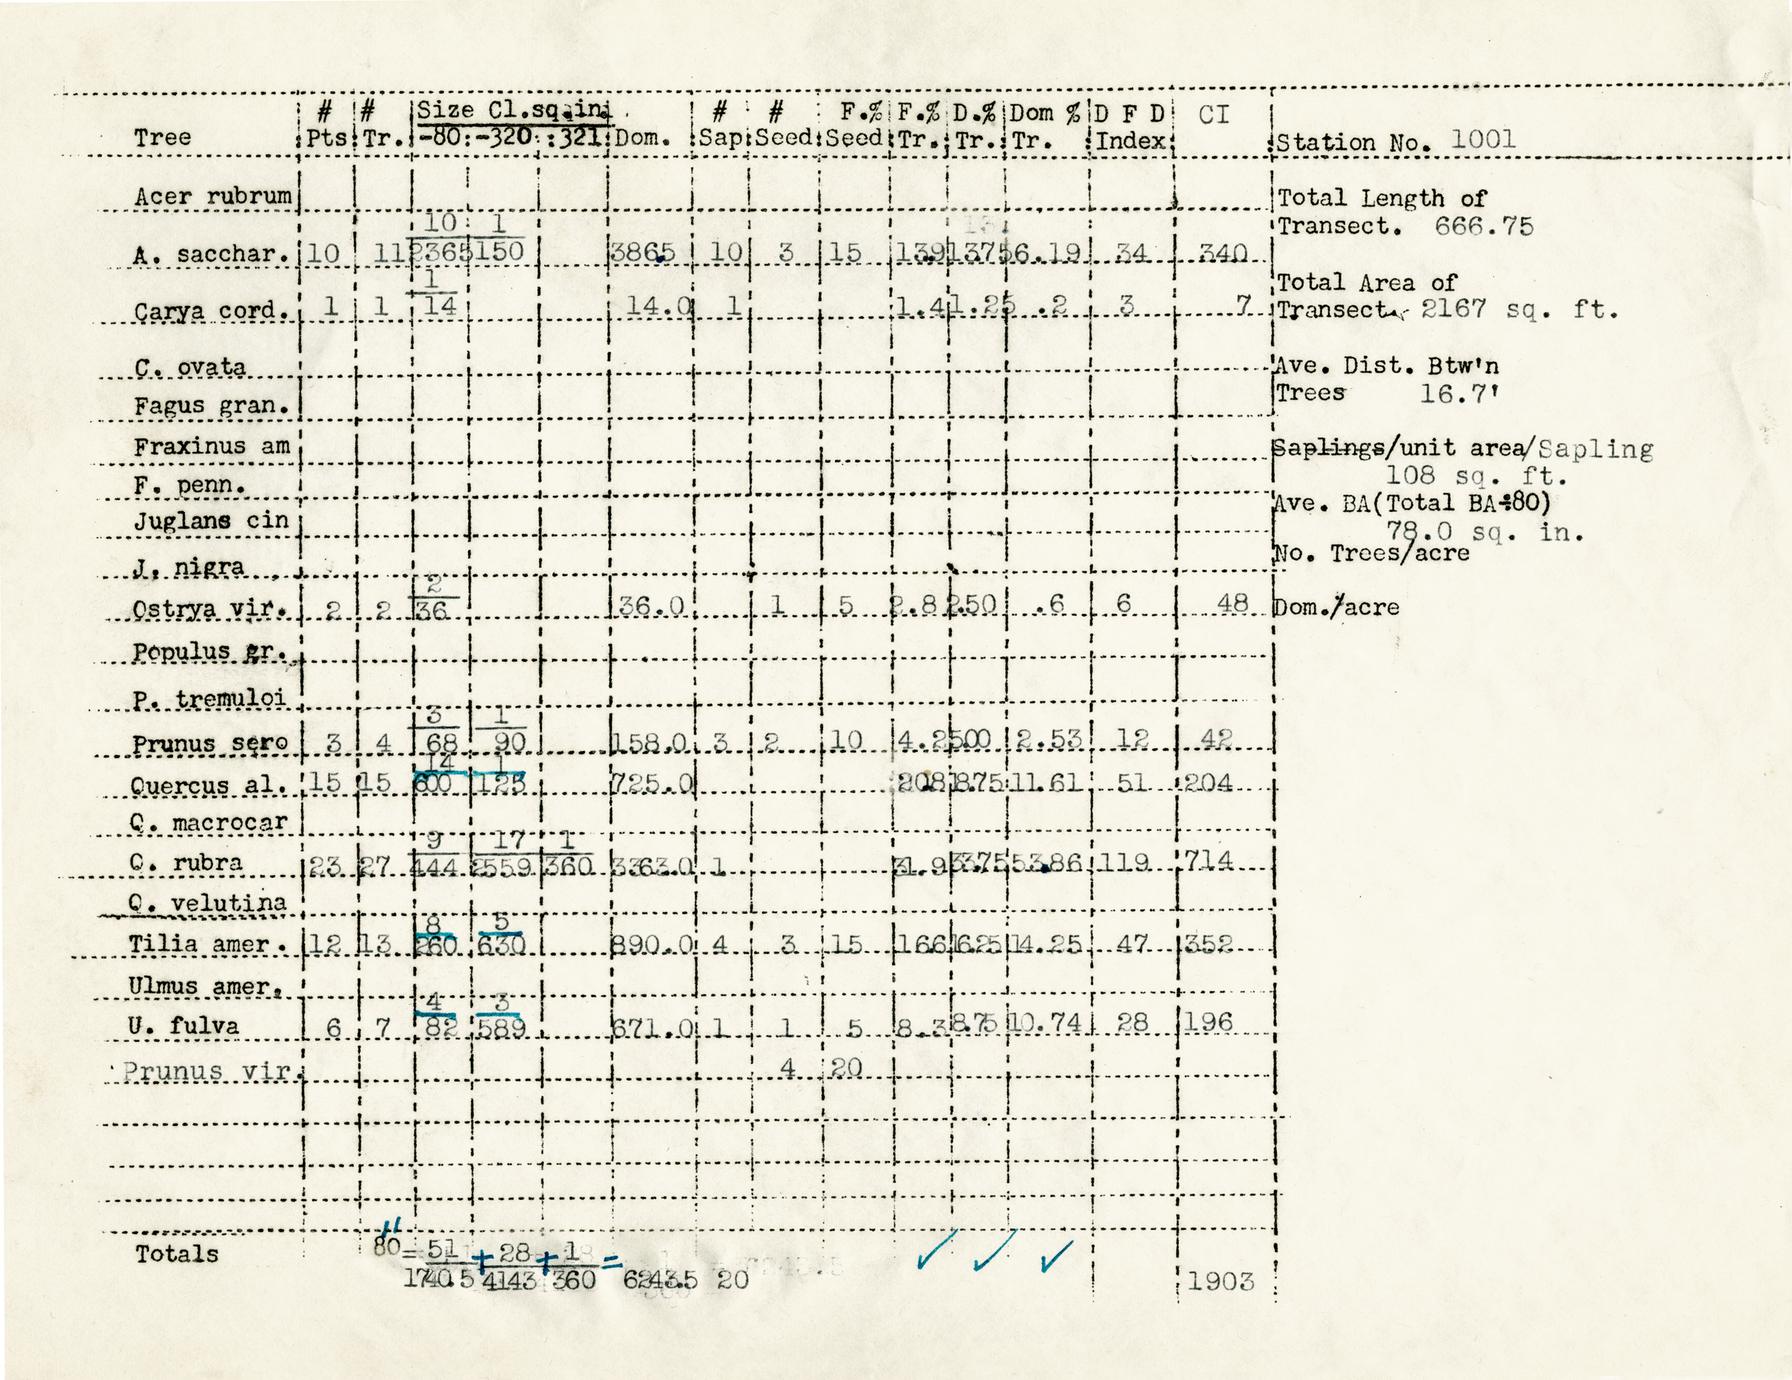 # # Size Cl.sq.in. # # F.% F.% D.% Dom % D F D CI
Tree Pts Tr. -80: -320: :321: Dom. Sap Seed Seed Tr. Tr. Tr. Index Station No. 1001
Acer rubrum Total Length of
10 1 Transect. 666.75
A. sacchar. 10 11 2365 150 3865 10 3 15 139 1375 6.19 34 340
1 Total Area of
Carya cord. 1 1 14 14.0 1 1.4 1.25 .2 3 7 Transect. 2167 sq. ft.
C. ovata Ave. Dist. Btw'n
Fagus gran. Trees 16.7'
Fraxinus am Saplings/unit area/Sapling
F. penn. 108 sq. ft.
Ave. BA(Total BA÷80)
Juglans cin 78.0 sq. in.
J. nigra No. Trees/acre
2
Ostrya vir. 2 2 36 36.0 1 5 2.8 2.50 .6 6 48 Dom./acre
Populus gr.
P. tremuloi
3 1
Prunus sero 3 4 68 90 158.0 3 2 10 4.2 500 2.53 12 42
14 1
Quercus al. 15 15 600 125 725.0 208 1875 11.61 51 204
Q. macrocar
9 17 1
Q. rubra 23 27 444 2559 360 3363.0 1 31.9 3375 53.86 119 714
Q. velutina
8 5
Tilia amer. 12 13 260 630 890.0 4 3 15 166 1625 14.25 47 352
Ulmus amer.
4 3
U. fulva 6 7 82 589 671.0 1 1 5 8.3 8.75 10.74 28 196
Prunus vir. 4 20
Totals 80= 51 + 28 + 1 =
1740.5 4143 360 6243.5 20 1903